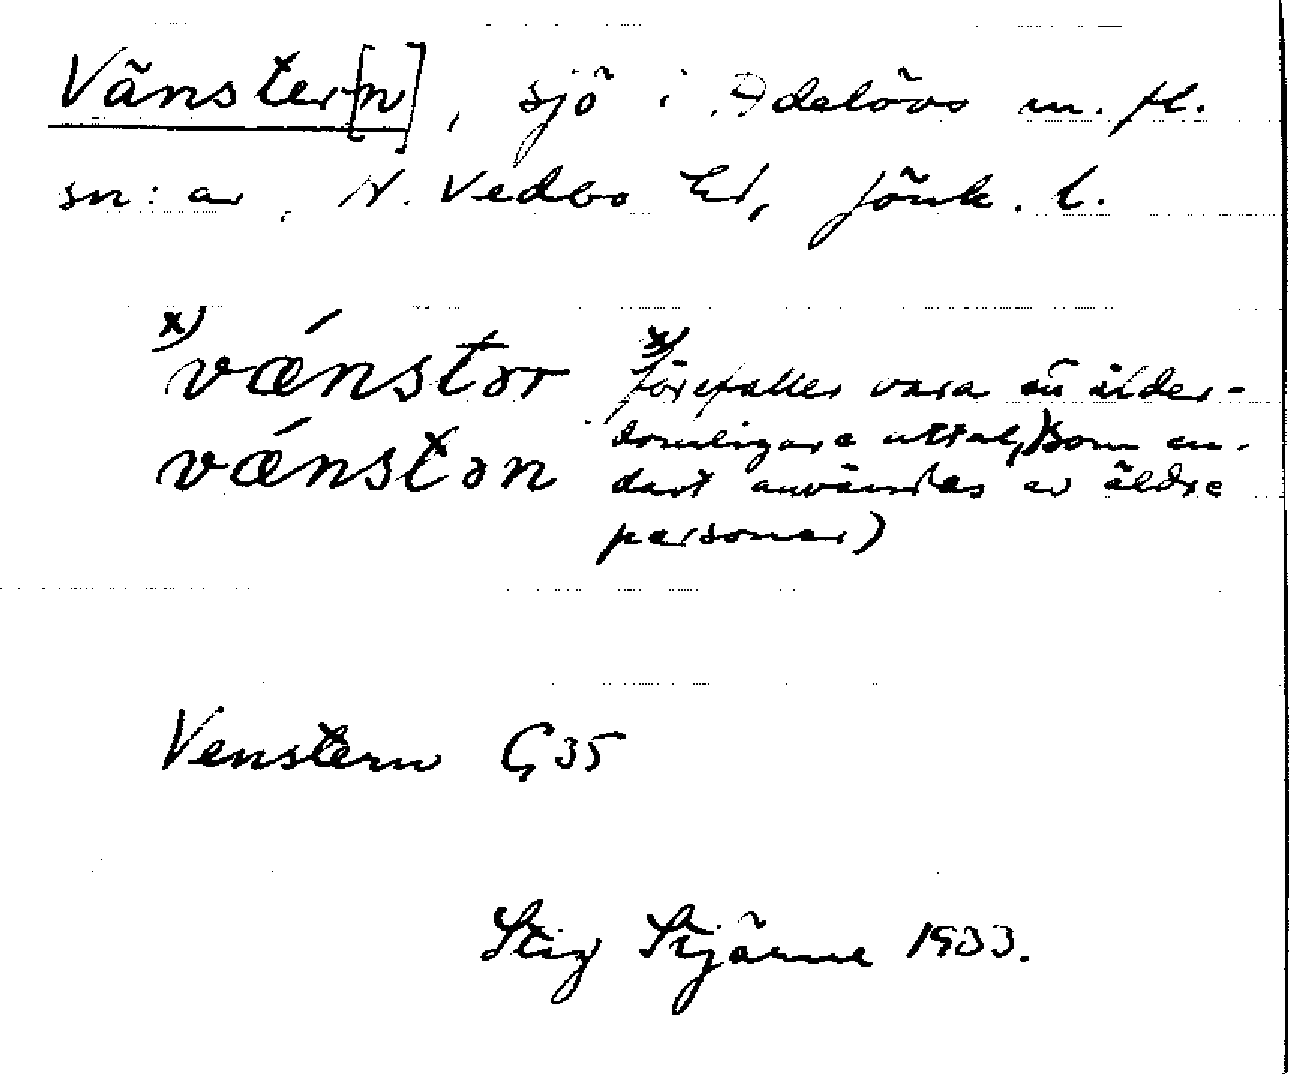 Vänster[n], sjö i Adelövs m. fl.
sn:ar. N. Vedbo hd, Jönk. l.
x) vǽnstər
vǽnstən
x) förefaller vara ett ålder-
domligare uttal, som en-
dast användes av äldre
personer)
Venstern G 35
Stig Stjärne 1933.